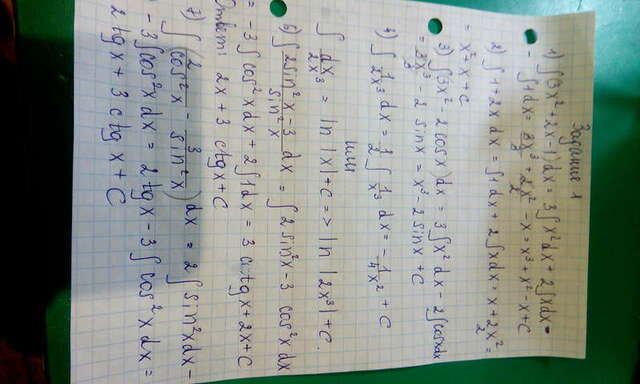 Задание 1
1) ∫(3x²+2x-1)dx = 3∫x²dx + 2∫xdx -
- ∫1dx = 3x³/3 + 2x²/2 - x = x³+x²-x+C
2) ∫1+2x dx = ∫1dx + 2∫xdx = x + 2x²/2 =
= x²+x+C
3) ∫(3x²-2cosx)dx = 3∫x²dx - 2∫cosxdx
= 3x³/3 - 2sinx = x³-2sinx+C
4) ∫1/2x³ dx = 1/2 ∫1/x³ dx = -1/4x² + C
или
∫dx/2x³ = ln|x|+C => ln|2x³|+C.
6) ∫2sin²x-3/sin²x dx = ∫2sin²x-3 cos²xdx
= -3∫cos²xdx+2∫1dx = 3ctgx+2x+C
Ответ: 2x+3 ctgx+C
7) ∫(2/cos²x - 3/sin²x)dx = 2∫sin²xdx -
- 3∫cos²xdx = 2tgx-3∫cos²xdx =
2tgx+3ctgx+C